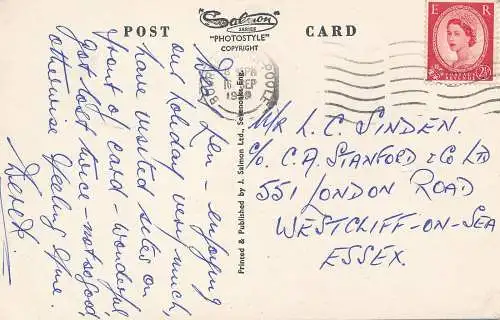 POST
Salmon
SERIES
"PHOTOSTYLE"
COPYRIGHT
CARD
E R
2½D
POOLE
16 SEP
1959
Printed & Published by J. Salmon Ltd., Sevenoaks, Eng.
Dear Len – enjoying
our holiday very much,
have visited sites on
front of card – wonderful
got lost twice – not so good,
otherwise feeling fine.
Derek.
MR L. C. SINDEN.
C/o. C.A. STANFORD & CO LTD
551 LONDON ROAD
WESTCLIFF-ON-SEA
ESSEX.